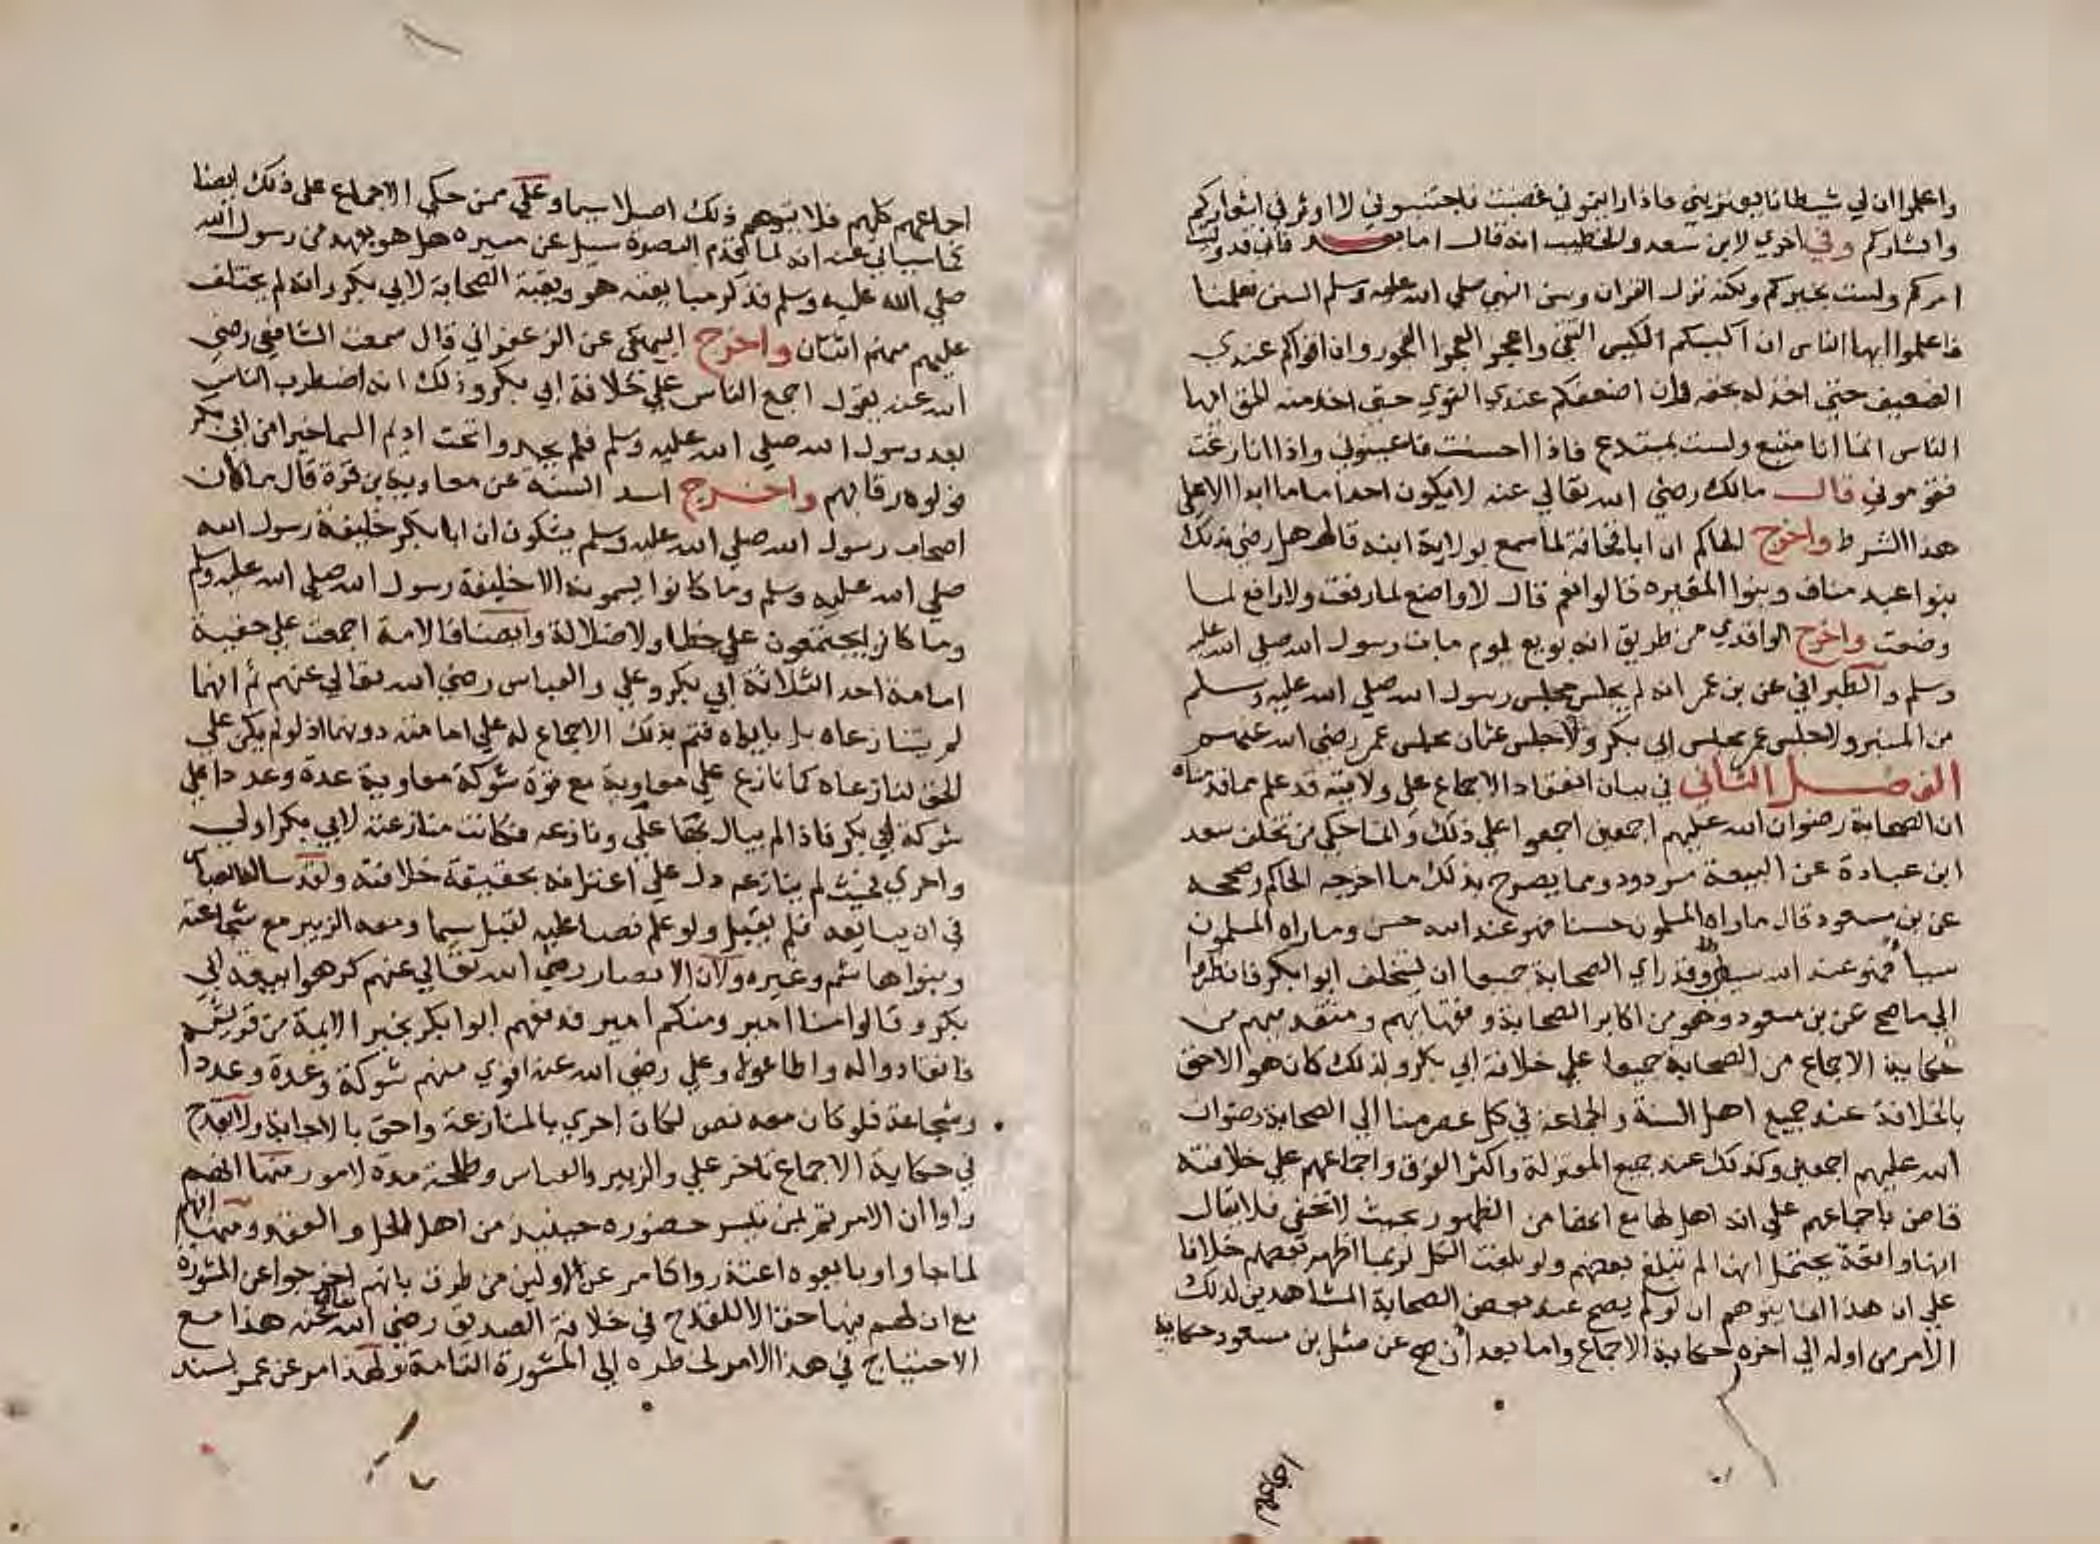 واعلموا ان لي شيطانا يعتريني فاذا رايتموني غضبت فاجتنبوني لا اوثر في اشعاركم
وابشاركم وفي اخري لابن سعد والخطيب انه قال اما بعد فاني قد وليت
امركم ولست بخيركم ولكنه نزل القران وسن النبي صلي الله عليه وسلم السنن فعلمنا
فاعلموا ايها الناس ان اكيس الكيس التقي واعجز العجز الفجور وان اقواكم عندي
الضعيف حتي اخذ له بحقه وان اضعفكم عندي القوي حتي اخذ منه الحق ايها
الناس انما انا متبع ولست بمبتدع فاذا احسنت فاعينوني واذا انا زغت
فقوموني قال مالك رضي الله تعالي عنه لا يكون احد اماما ابدا الا علي
هذا الشرط واخرج الحاكم ان ابا قحافة لما سمع بولاية ابنه قال هل رضي بذلك
بنوا عبد مناف وبنوا المغيره قالوا نعم قال لا واضع لما رفعت ولا رافع لما
وضعت واخرج الواقدي من طريق انه بويع يوم مات رسول الله صلي الله عليه
وسلم والطبراني عن بن عمر انه لم يجلس مجلس رسول الله صلي الله عليه وسلم
من المنبر ولا جلس عمر مجلس ابي بكر ولا جلس عثمان مجلس عمر رضي الله عنهم
الفصل الثاني في بيان انعقاد الاجماع علي ولايته قد علم مما قدمناه
ان الصحابة رضوان الله عليهم اجمعين اجمعوا علي ذلك وان ما حكي من تخلف سعد
ابن عبادة عن البيعة مردود ومما يصرح بذلك ما اخرجه الحاكم وصححه
عن بن مسعود قال ما راه المسلمون حسنا فهو عند الله حسن وما راه المسلمون
سيا فهو عند الله سيئ وقد راي الصحابة جميعا ان يستخلف ابوا بكر فانظر
الي ما صح عن بن مسعود وهو من اكابر الصحابة وفقهايهم ومتقدميهم من
حكاية الاجماع من الصحابة جميعا علي خلافة ابي بكر ولذلك كان هو الاحق
بالخلافة عند جميع اهل السنة والجماعة في كل عصر منا الي الصحابة رضوان
الله عليهم اجمعين وكذلك عند جميع المعتزلة واكثر الفرق واجماعهم علي خلافته
قاض باجماعهم علي انه اهل لها مع انها من الظهور بحيث لا تخفي فلا يقال
انها واقعة يحتمل انها لم تبلغ بعضهم ولو بلغت الكل لربما اظهر بعضهم خلافا
علي ان هذا انما يتوهم ان لو لم يصح عند بعض الصحابة المشاهدين لذلك
الامر من اوله الي اخره حكاية الاجماع واما بعد أن صح عن مثل بن مسعود حكاية
اجماعهم
اجماعهم كلهم فلا يتوهم ذلك اصلا سيما وعلي ممن حكي الاجماع علي ذلك ايضا
كما سياتي عنه انه لما قدم البصرة سيل عن مسيره هل هو بعهد من رسول الله
صلي الله عليه وسلم فذكر مبايعته هو وبقية الصحابة لابي بكر وانه لم يختلف
عليهم منهم اثنان واخرج البيهقي عن الزعفراني قال سمعت الشافعي رضي
الله عنه يقول اجمع الناس علي خلافة ابي بكر وذلك انه اضطرب الناس
بعد رسول الله صلي الله عليه وسلم فلم يجدوا تحت اديم السما خيرا من ابي بكر
فولوه رقابهم واخرج اسد السنة عن معاوية بن قرة قال ما كان
اصحاب رسول الله صلي الله عليه وسلم يشكون ان ابا بكر خليفة رسول الله
صلي الله عليه وسلم وما كانوا يسمونه الا خليفة رسول الله صلي الله عليه وسلم
وما كانوا يجتمعون علي خطا ولا ضلالة وايضا فالامة اجمعت علي حقية
امامة احد الثلاثة ابي بكر وعلي والعباس رضي الله تعالي عنهم ثم انهما
لم يتنازعاه بل بايعاه فتم بذلك الاجماع له علي امامته دونهما اذ لو لم يكن علي
الحق لنازعاه كما نازع علي معاوية مع قوة شوكة معاوية عدة وعددا علي
شوكة ابي بكر فاذا لم يبال بها علي ونازعه فكانت منازعته لابي بكر اولي
واحري فحيث لم ينازعه دل علي اعترافه بحقيقة خلافته ولقد ساله العباس
في ان يبايعه فلم يقبل ولو علم نصا عليه لقبل سيما ومعه الزبير مع شجاعته
وبنوا هاشم وغيره ولان الانصار رضي الله تعالي عنهم كرهوا بيعة ابي
بكر وقالوا منا امير ومنكم امير فدفعهم ابوا بكر بخبر الايمة من قريش
فانقادوا له واطاعوه وعلي رضي الله عنه اقوي منهم شوكة وعدة وعددا
وشجاعة فلو كان معه نص لكان احري بالمنازعة واحق بالاجابة ولا يقدح
في حكاية الاجماع تاخر علي والزبير والعباس وطلحة مدة لامور منها انهم
راوا ان الامر تم بمن تيسر حضوره حينيذ من اهل الحل والعقد ومنها انهم
لما جاوا وبايعوه اعتذروا كما مر عن الاولين من طرق بانهم اخرجوا عن المشورة
مع ان لهم فيها حقا لا للقدح في خلافة الصديق رضي الله تعالي عنه هذا مع
الاحتياج في هذا الامر لخطره الي المشورة التامة ولهذا مر عن عمر بسند